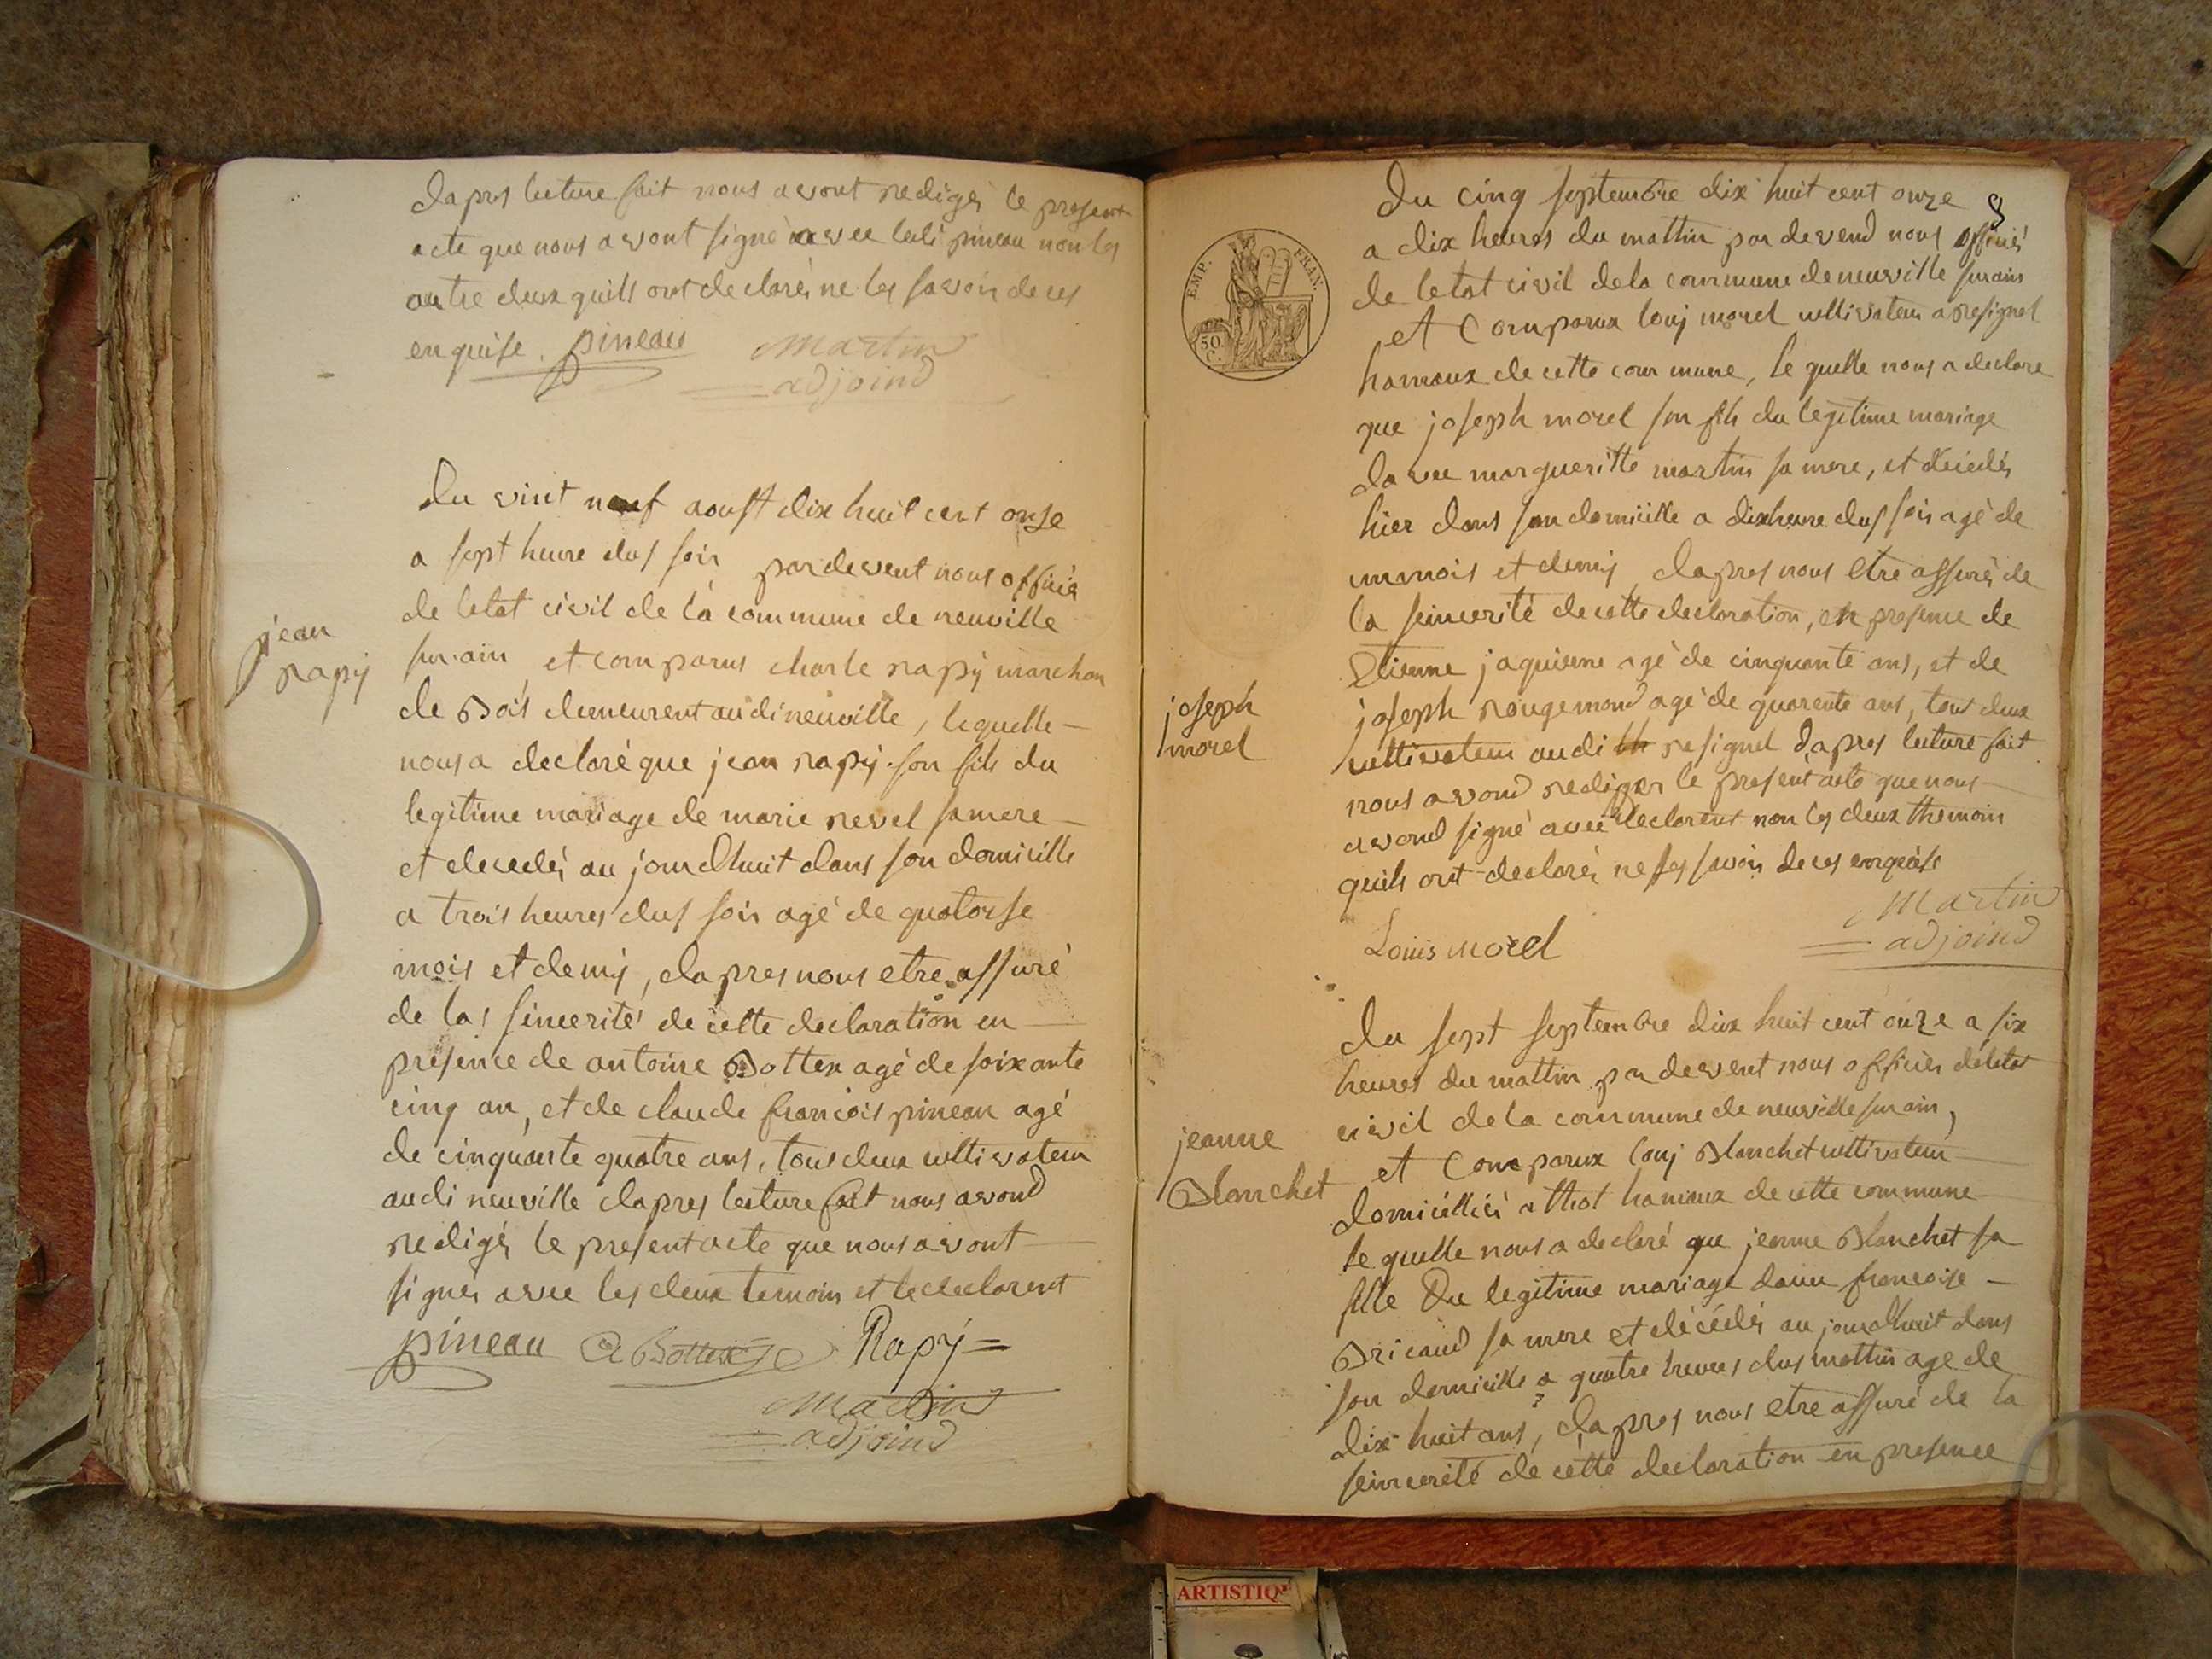 dapres lecture fait nous avont redigés le present
acte que nous avont signé avec ledi pineau non les
autre deux quils ont declarés ne les savoir de ces
enquise. pineau Martin
adjoind
jean
rapij
du vint neuf aoust dix huit cent onse
a sept heure dus soir pardevent nous officié
de letat civil de la commune de neuville
sur ain et comparus charle rapij marchan
de Bois demeurent audi neuville, lequelle
nous a declaré que jean rapij son fils du
legitime mariage de marie revel sa mere
et decedés aujourdhuit dans son domicille
a trois heures dus soir agé de quatorse
mois et demij, dapres nous etre assuré
de las sincerité de cette declaration en
presence de antoine Bottex agé de soixante
cinq an, et de claude francois pineau agé
de cinquante quatre ans, tous deux cultivateur
audi neuville dapres lecture fait nous avond
redigés le present acte que nous avont
signés avec les deux temoin et le declarent
pineau Bottex Rapij
Martin
adjoind
8
EMP. FRAN.
50
C.
du cinq septembre dix huit cent onze
a dix heures du mattin par devend nous officié
de letat civil dela commune de neuville sur ain
et Comparux louj morel cultivateur a resignel
hamaux de cette commune, le quelle nous a declare
que joseph morel son fils du legitime mariage
davec margueritte martin sa mere, et decedés
hier dans son domicille a dix heure dus soir agé de
un mois et demij dapres nous etre assurés de
la seincerité de cette declaration, en presence de
Etienne jaquieme agé de cinquante ans, et de
joseph
morel
joseph rougemond agé de quarente ans, tous deux
cultivateur audi resignel dapres lecture fait
nous avond rediger le present acte que nous
avond signé avec declarent non les deux themoin
quils ont declarés ne les savoir de ces enquise
Martin
adjoind
Louis morel
du sept septembre dix huit cent onze a six
heures du mattin par devent nous officier de letat
civil de la commune de neuville sur ain,
jeanne
Blanchet
et Comparux louj Blanchet cultivateur
domicilliés a thol hamaux de cette commune
le quelle nous a declaré que jeanne Blanchet sa
fille Du legitime mariage davec francoise
Bricaud sa mere et décédés aujourdhuit dans
son domicille a quatre heures dus mattin age de
dix huit ans, dapres nous etre assuré de la
seincerité de cette declaration en presence
ARTISTIQ